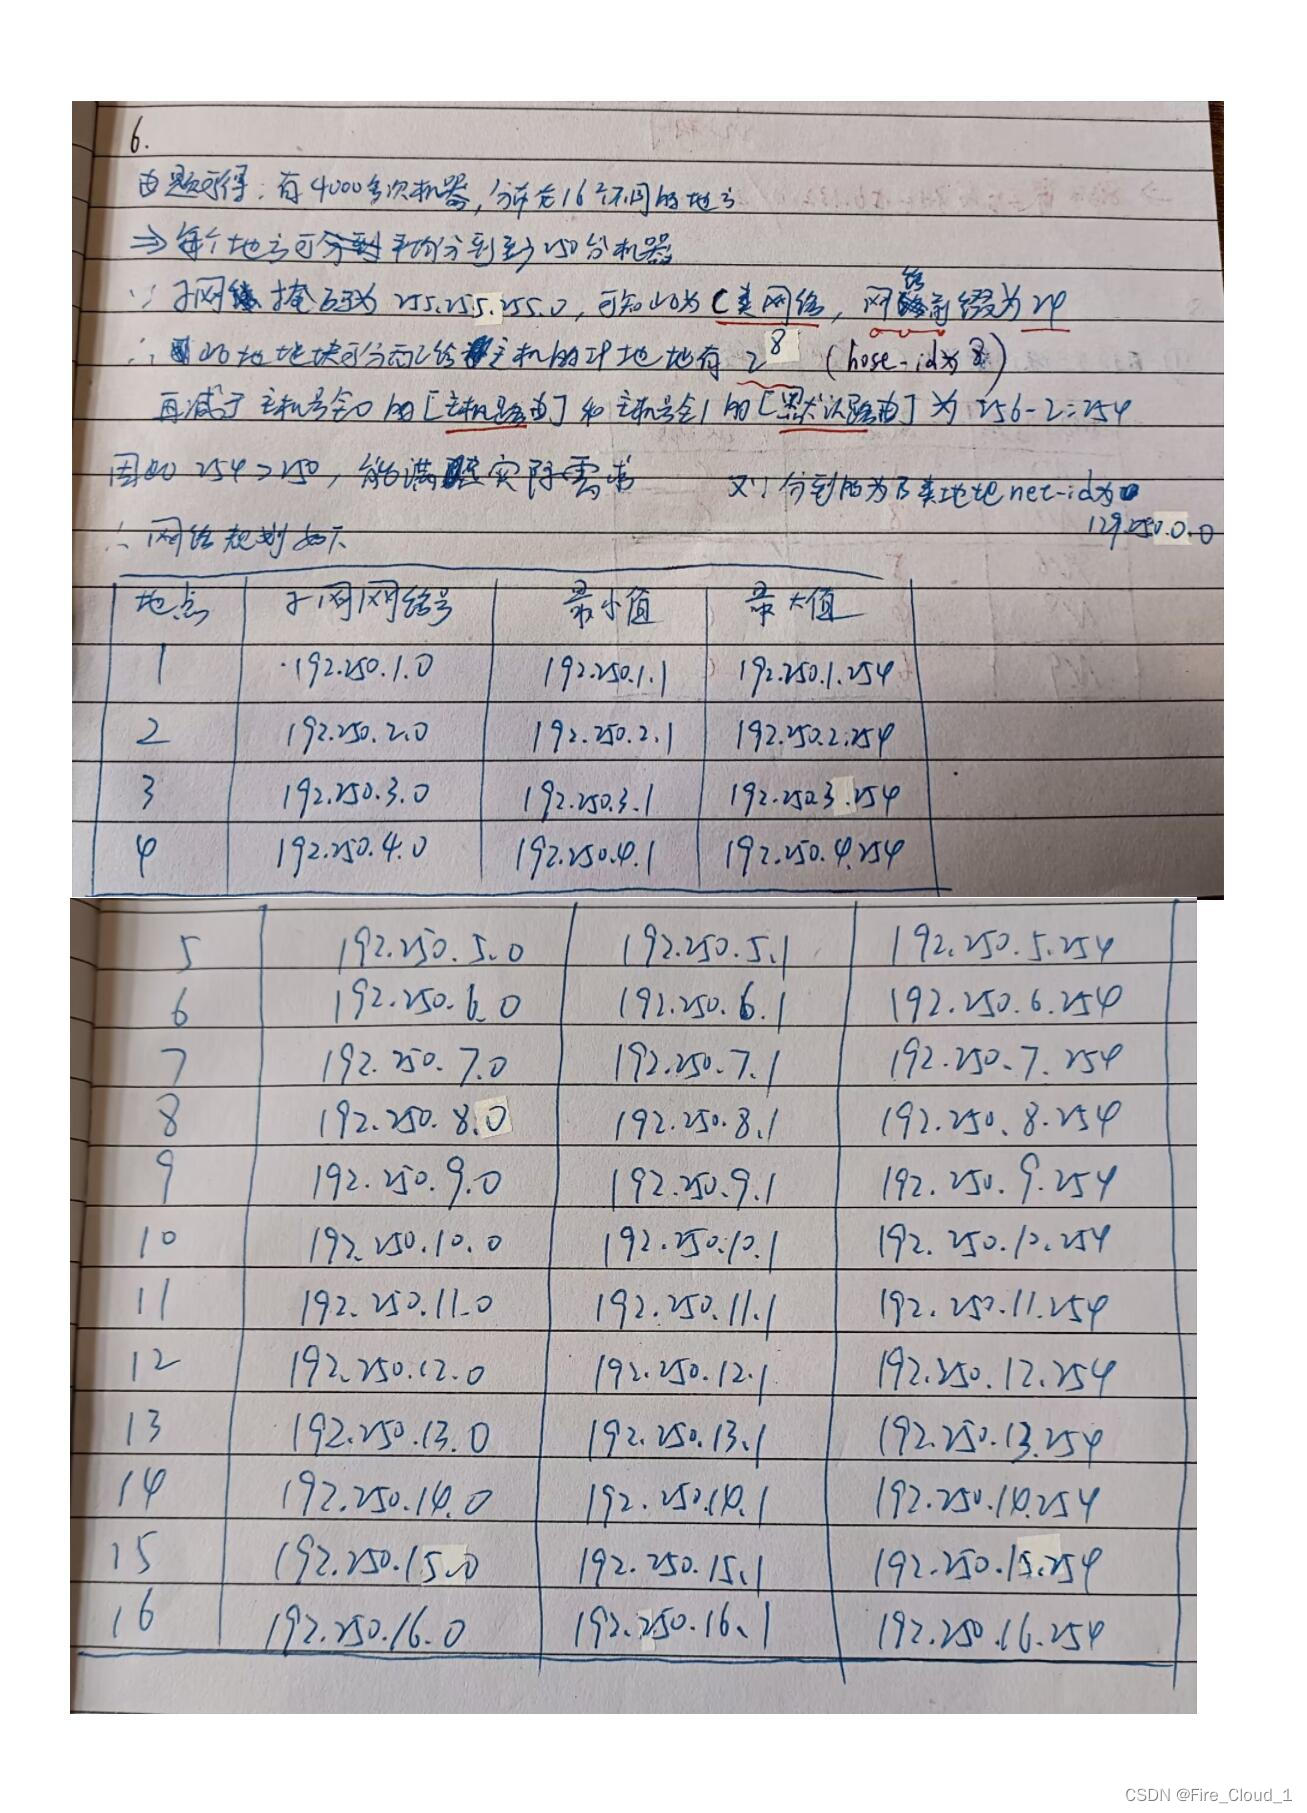 6.
由题可得：有4000多次机器，分布在16个不同的地方
⇒ 每个地方可分到平均分到到250台机器
∵ 子网掩码为 255.255.255.0，可知此为C类网络，网络前缀为24
∴ 此地址块可分配给主机的IP地址有 2^8 (hose-id为8)
再减了主机号全0的[主机路由]和主机号全1的[默认路由]为 256-2=254
因此 254>250，能满足实际需求 又∵分到的为B类地址net-id为
129.250.0.0
∴ 网络规划如下
地点 子网网络号 最小值 最大值
1 192.250.1.0 192.250.1.1 192.250.1.254
2 192.250.2.0 192.250.2.1 192.250.2.254
3 192.250.3.0 192.250.3.1 192.250.3.254
4 192.250.4.0 192.250.4.1 192.250.4.254
5 192.250.5.0 192.250.5.1 192.250.5.254
6 192.250.6.0 192.250.6.1 192.250.6.254
7 192.250.7.0 192.250.7.1 192.250.7.254
8 192.250.8.0 192.250.8.1 192.250.8.254
9 192.250.9.0 192.250.9.1 192.250.9.254
10 192.250.10.0 192.250.10.1 192.250.10.254
11 192.250.11.0 192.250.11.1 192.250.11.254
12 192.250.12.0 192.250.12.1 192.250.12.254
13 192.250.13.0 192.250.13.1 192.250.13.254
14 192.250.14.0 192.250.14.1 192.250.14.254
15 192.250.15.0 192.250.15.1 192.250.15.254
16 192.250.16.0 192.250.16.1 192.250.16.254
CSDN @Fire_Cloud_1